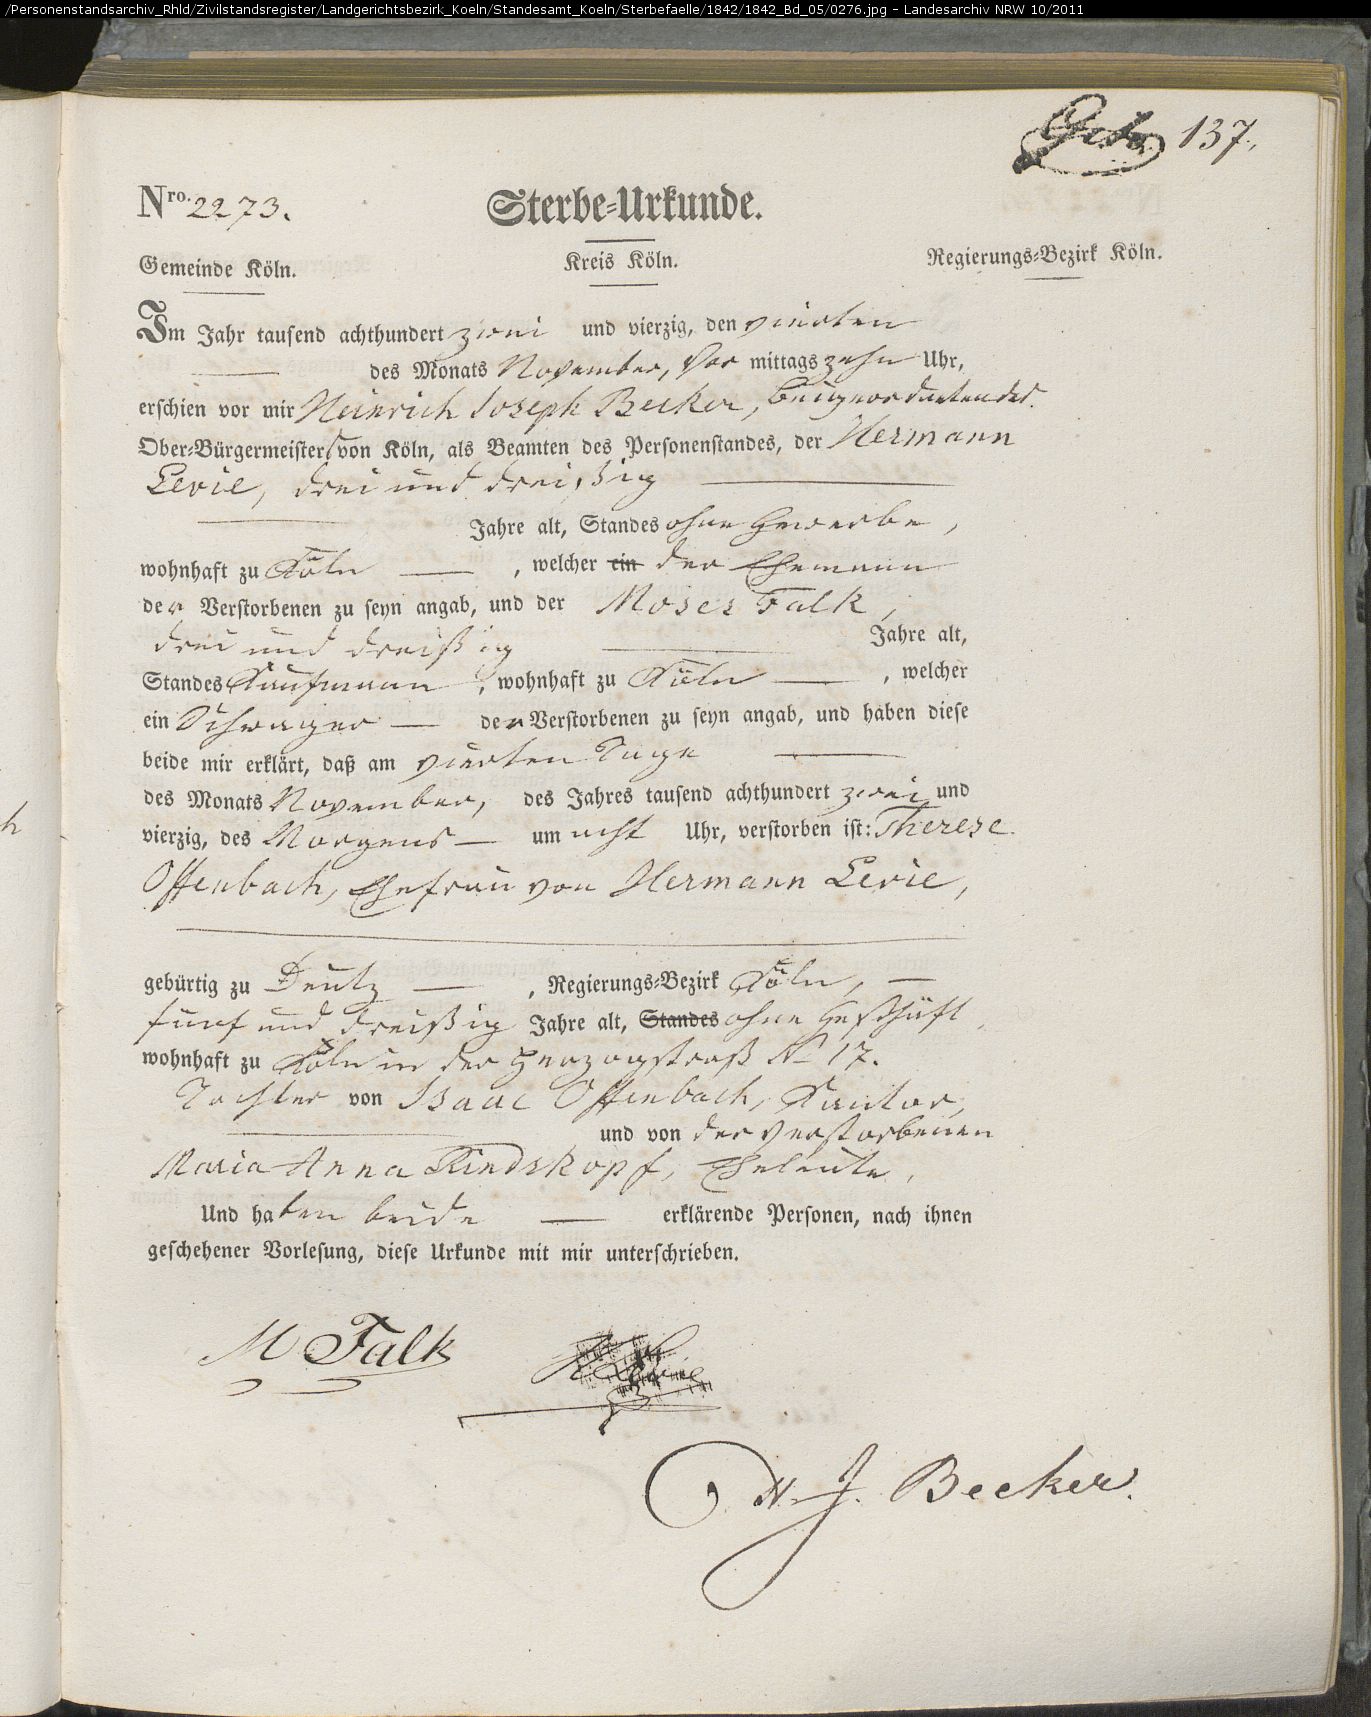 /Personenstandsarchiv_Rhld/Zivilstandsregister/Landgerichtsbezirk_Koeln/Standesamt_Koeln/Sterbefaelle/1842/1842_Bd_05/0276.jpg - Landesarchiv NRW 10/2011
137.
Nro. 2273. Sterbe-Urkunde.
Gemeinde Köln. Kreis Köln. Regierungs-Bezirk Köln.
Im Jahr tausend achthundert zwei und vierzig, den vierten
des Monats November, Vor mittags zehn Uhr,
erschien vor mir Heinrich Joseph Becker, Beigeordneten des
Ober-Bürgermeisters von Köln, als Beamten des Personenstandes, der Hermann
Levie, drei und dreißig
Jahre alt, Standes ohne Gewerbe,
wohnhaft zu Köln, welcher ein der Ehemann
der Verstorbenen zu seyn angab, und der Moses Falk,
drei und dreißig Jahre alt,
Standes Kaufmann, wohnhaft zu Köln, welcher
ein Schwager der Verstorbenen zu seyn angab, und haben diese
beide mir erklärt, daß am vierten Tage
des Monats November, des Jahres tausend achthundert zwei und
vierzig, des Morgens um acht Uhr, verstorben ist: Therese
Offenbach, Ehefrau von Hermann Levie,
gebürtig zu Deutz, Regierungs-Bezirk Köln,
fünf und dreißig Jahre alt, Standes ohne Geschäft,
wohnhaft zu Köln in der Herzogstraß No 17.
Tochter von Isaac Offenbach, Kantor,
und von der verstorbenen
Maria Anna Rindskopf, Eheleute,
Und haben beide erklärende Personen, nach ihnen
geschehener Vorlesung, diese Urkunde mit mir unterschrieben.
M Falk H Levie
H. J. Becker.